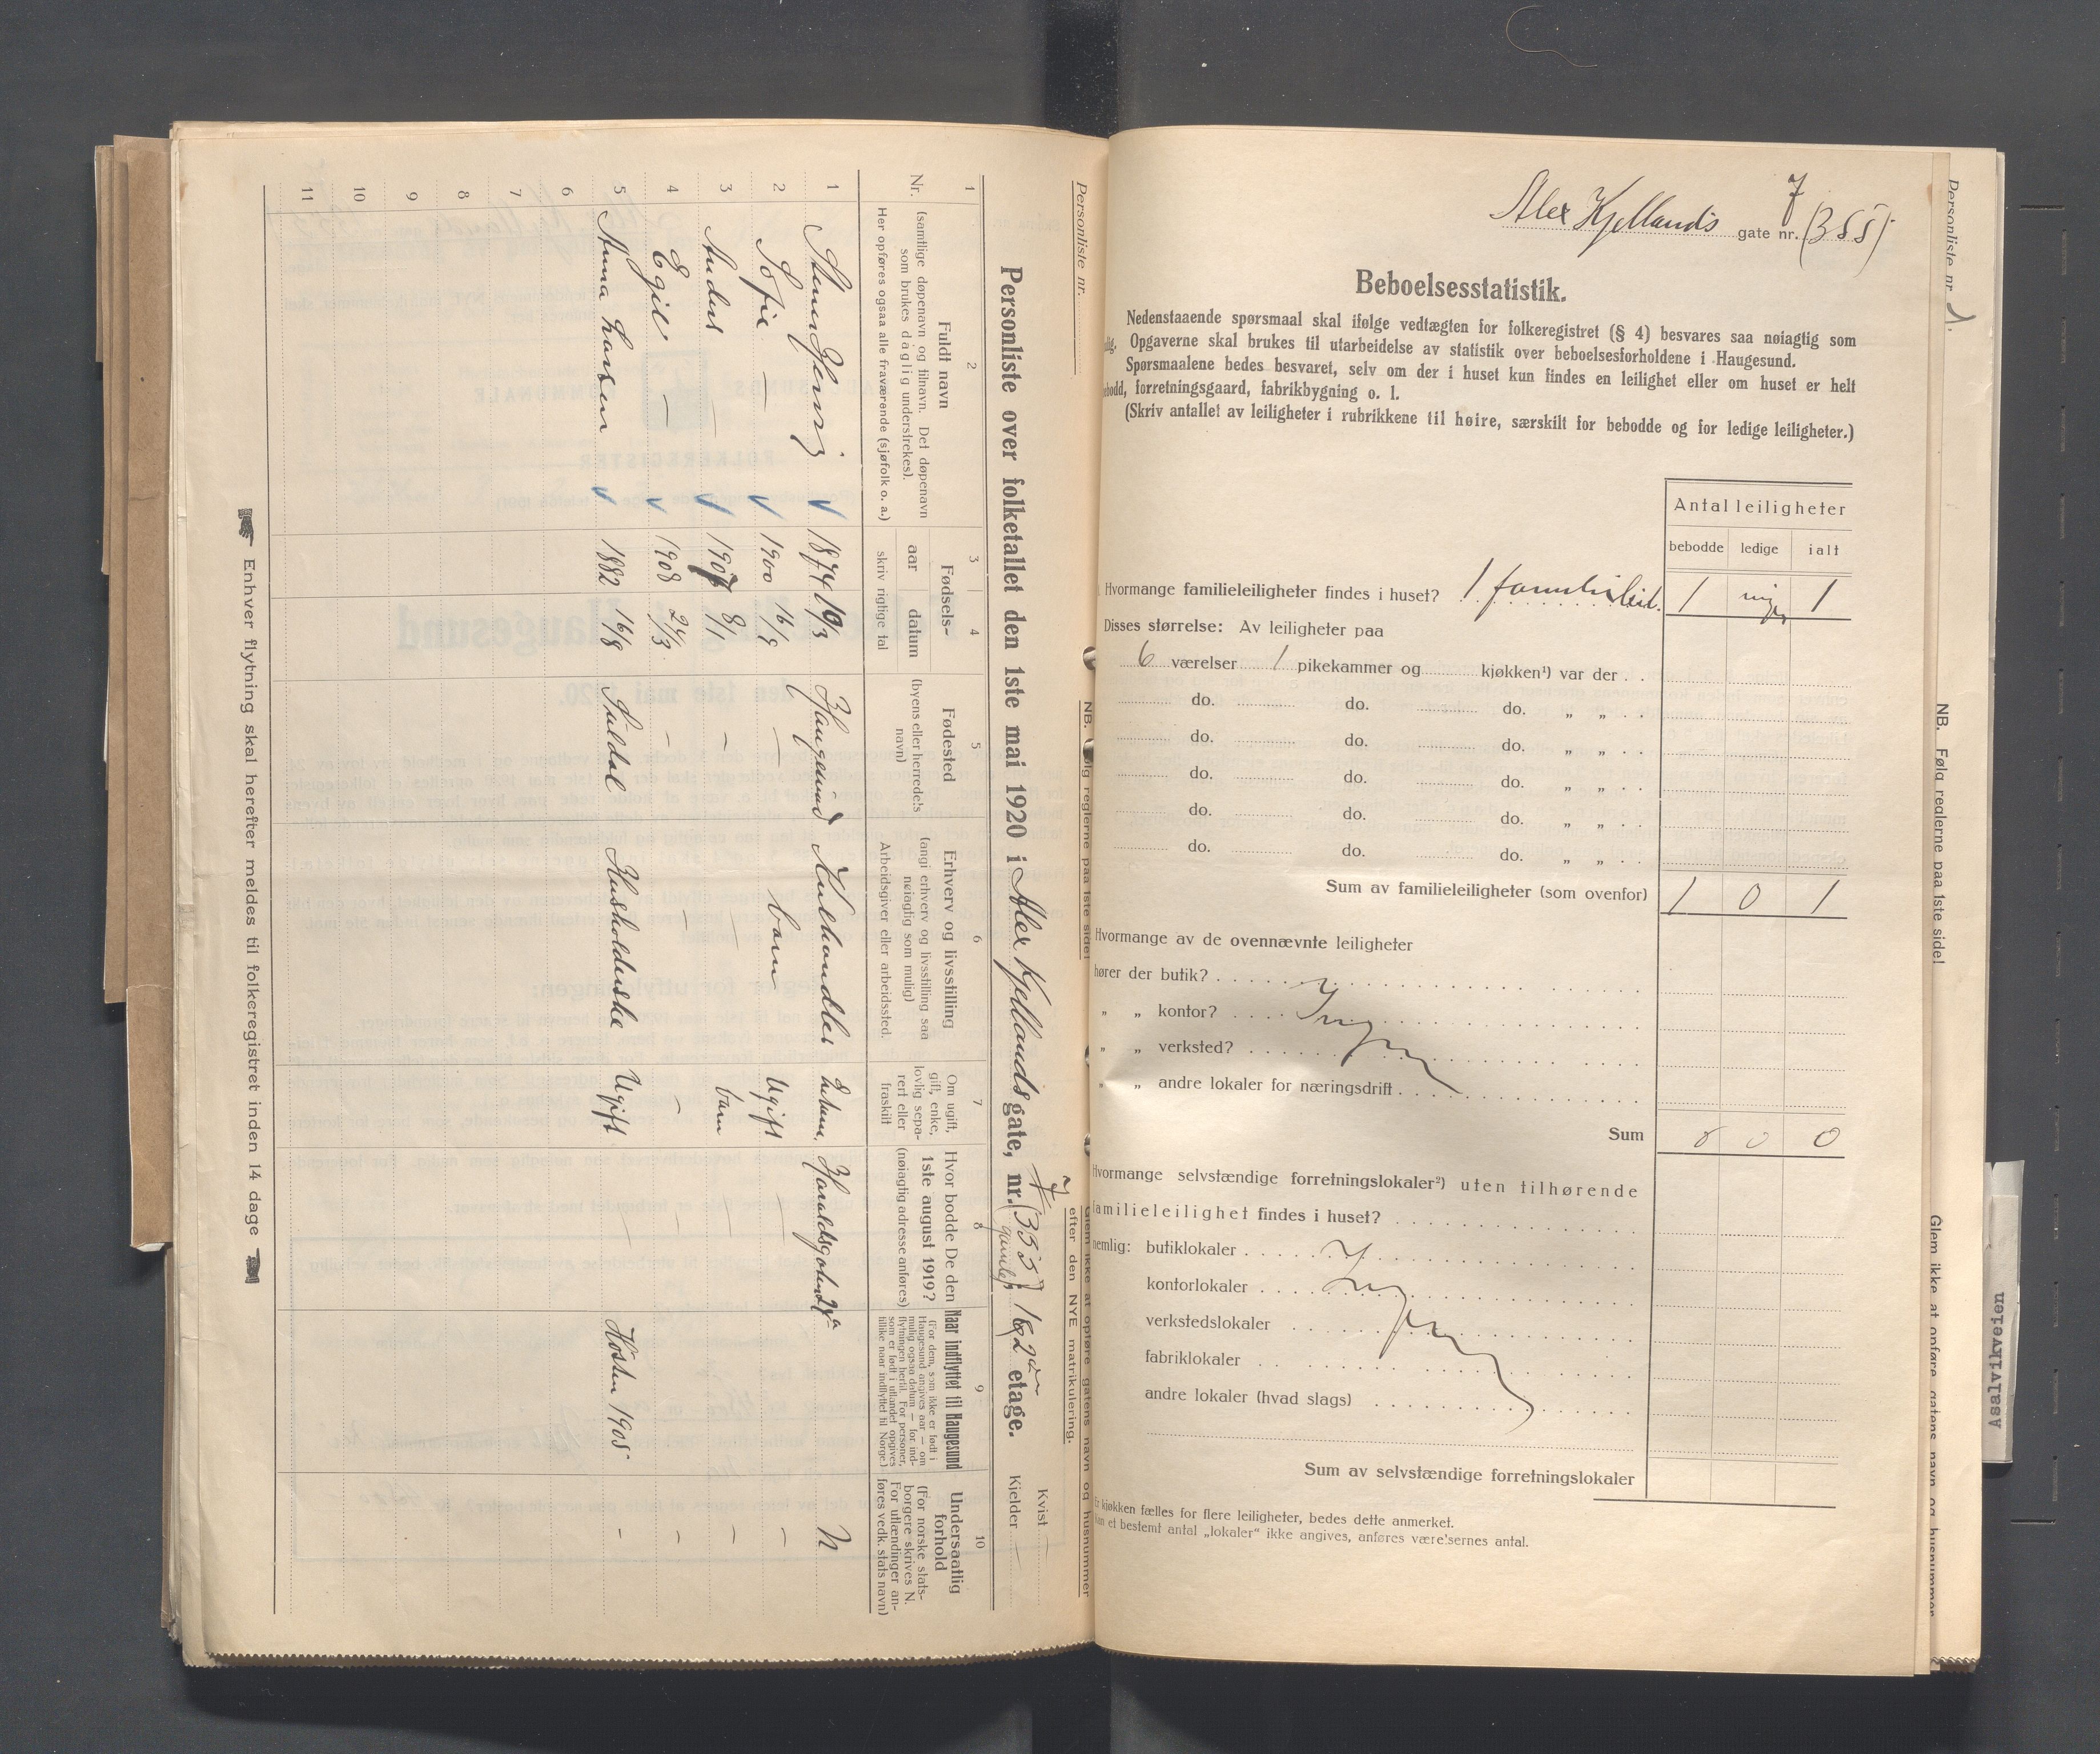 Personliste nr.
NB. Følg reglerne paa 1ste side!
Glem ikke at opføre gatens navn og husnummer
efter den NYE matrikulering.
Personliste over folketallet den 1ste mai 1920 i Alex Kjellands gate, nr. 7 (355) 1 & 2 etage.
gamle
Kvist —
Kjelder —
1 2 3 4 5 6 7 8 9 10
Nr.
Fuldt navn
(samtlige døpenavn og tilnavn. Det døpenavn
som brukes daglig understrekes).
Her opføres ogsaa alle fraværende (sjøfolk o. a.)
Fødsels-
aar datum
skriv rigtige tal
Fødested
(byens eller herredets
navn)
Erhverv og livsstilling
(angi erhverv og livsstilling saa
nøiagtig som mulig)
Arbeidsgiver eller arbeidssted.
Om ugift,
gift, enke,
lovlig sepa-
rert eller
fraskilt
Hvor bodde De den
1ste august 1919?
(nøiagtig adresse anføres)
Naar indflyttet til Haugesund
(For dem, som ikke er født i
Haugesund angives aar — om
mulig ogsaa datum — for ind-
flytningen hertil. For personer,
som er født i utlandet opgives
tillike naar indflyttet til Norge.)
Undersaatlig
forhold
(For norske stats-
borgere skrives N.
For utlændinger an-
føres vedk. stats navn)
1 1874 19/3 Haugesund Kulhandler Enkem. Haraldsgaten N
2 Sofie — 1900 16/8 — barn Ugift — —
3 Anders — 1907 8/1 — — barn — —
4 Egil — 1908 24/3 — — — — —
5 Anna Larsen 1882 16/8 Suldal Husholderske Ugift — Høsten 1905 —
6
7
8
9
10
11
Enhver flytning skal herefter meldes til folkeregistret inden 14 dage
Alex Kjellands gate nr. 7 (355)
Beboelsesstatistik.
Nedenstaaende spørsmaal skal ifølge vedtægten for folkeregistret (§ 4) besvares saa nøiagtig som
lig. Opgaverne skal brukes til utarbeidelse av statistik over beboelsesforholdene i Haugesund.
Spørsmaalene bedes besvaret, selv om der i huset kun findes en leilighet eller om huset er helt
ebodd, forretningsgaard, fabrikbygning o. l.
(Skriv antallet av leiligheter i rubrikkene til høire, særskilt for bebodde og for ledige leiligheter.)
Antal leiligheter
bebodde ledige ialt
Hvormange familieleiligheter findes i huset? 1 familieleil. 1 ingen 1
Disses størrelse: Av leiligheter paa
6 værelser 1 pikekammer og kjøkken¹) var der . .
do. do. do. „ „ . .
do. do. do. „ „ . .
do. do. do. „ „ . .
do. do. do. „ „ . .
do. do. do. „ „ . .
Sum av familieleiligheter (som ovenfor) 1 0 1
Hvormange av de ovennævnte leiligheter
hører der butik?
„ „ kontor? Ingen
„ „ verksted?
„ „ andre lokaler for næringsdrift
Sum 0 0 0
Hvormange selvstændige forretningslokaler²) uten tilhørende
familieleilighet findes i huset?
nemlig: butiklokaler
kontorlokaler Ingen
verkstedslokaler
fabriklokaler
andre lokaler (hvad slags)
Sum av selvstændige forretningslokaler
Er kjøkken fælles for flere leiligheter, bedes dette anmerket.
Kan et bestemt antal „lokaler“ ikke angives, anføres værelsernes antal.
Personliste nr. 1.
NB. Følg reglerne paa 1ste side!
Glem ikke at opføre gatens navn og husnummer
Asalvikveien